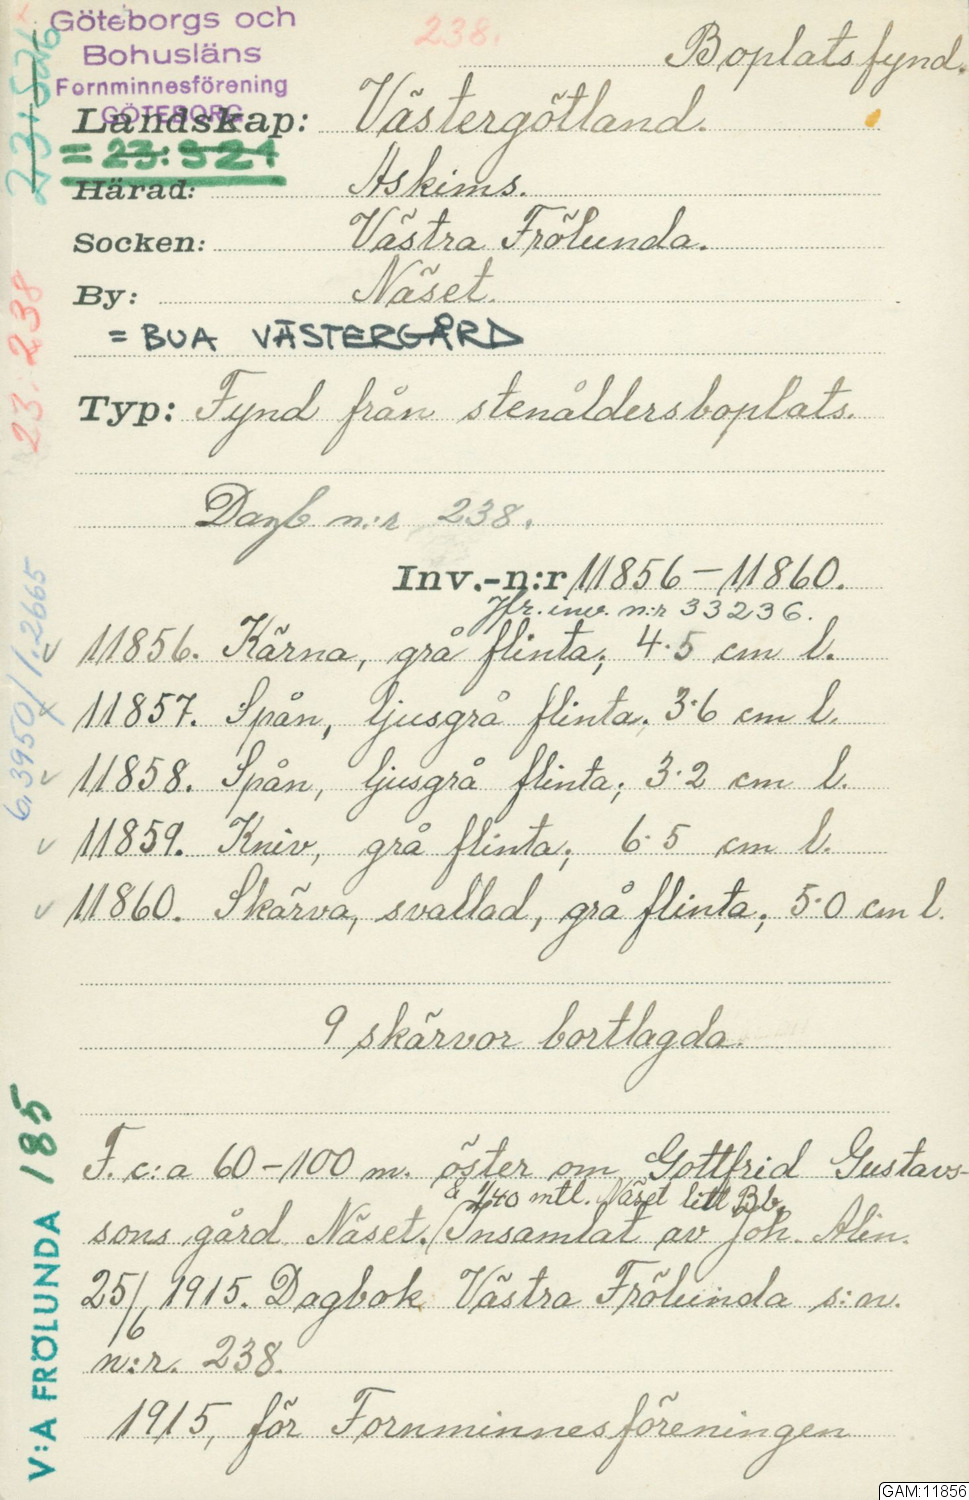 Göteborgs och
Bohusläns
Fornminnesförening
GÖTEBORG
238.
Boplatsfynd.
Landskap: Västergötland.
= 23: 321
Härad: Askims.
Socken: Västra Frölunda.
By: Näset.
= BUA VÄSTERGÅRD
Typ: Fynd från stenåldersboplats.
Dagb n:r 238.
Inv.-n:r 11856-11860.
Jfr. inv. n:r 33236.
11856. Kärna, grå flinta; 4.5 cm l.
11857. Spån, ljusgrå flinta; 3.6 cm l.
11858. Spån, ljusgrå flinta; 3.2 cm l.
11859. Kniv, grå flinta; 6.5 cm l.
11860. Skärva, svallad, grå flinta; 5.0 cm l.
9 skärvor bortlagda.
F. c:a 60-100 m. öster om Gottfrid Gustavs-
å 7/40 mtl. Näset litt Bb.
sons gård Näset. Insamlat av Joh. Alin.
25/6 1915. Dagbok Västra Frölunda s:n.
n:r. 238.
1915, för Fornminnesföreningen
23:238
6.3950/1.2665
V:A FRÖLUNDA 185
GAM:11856